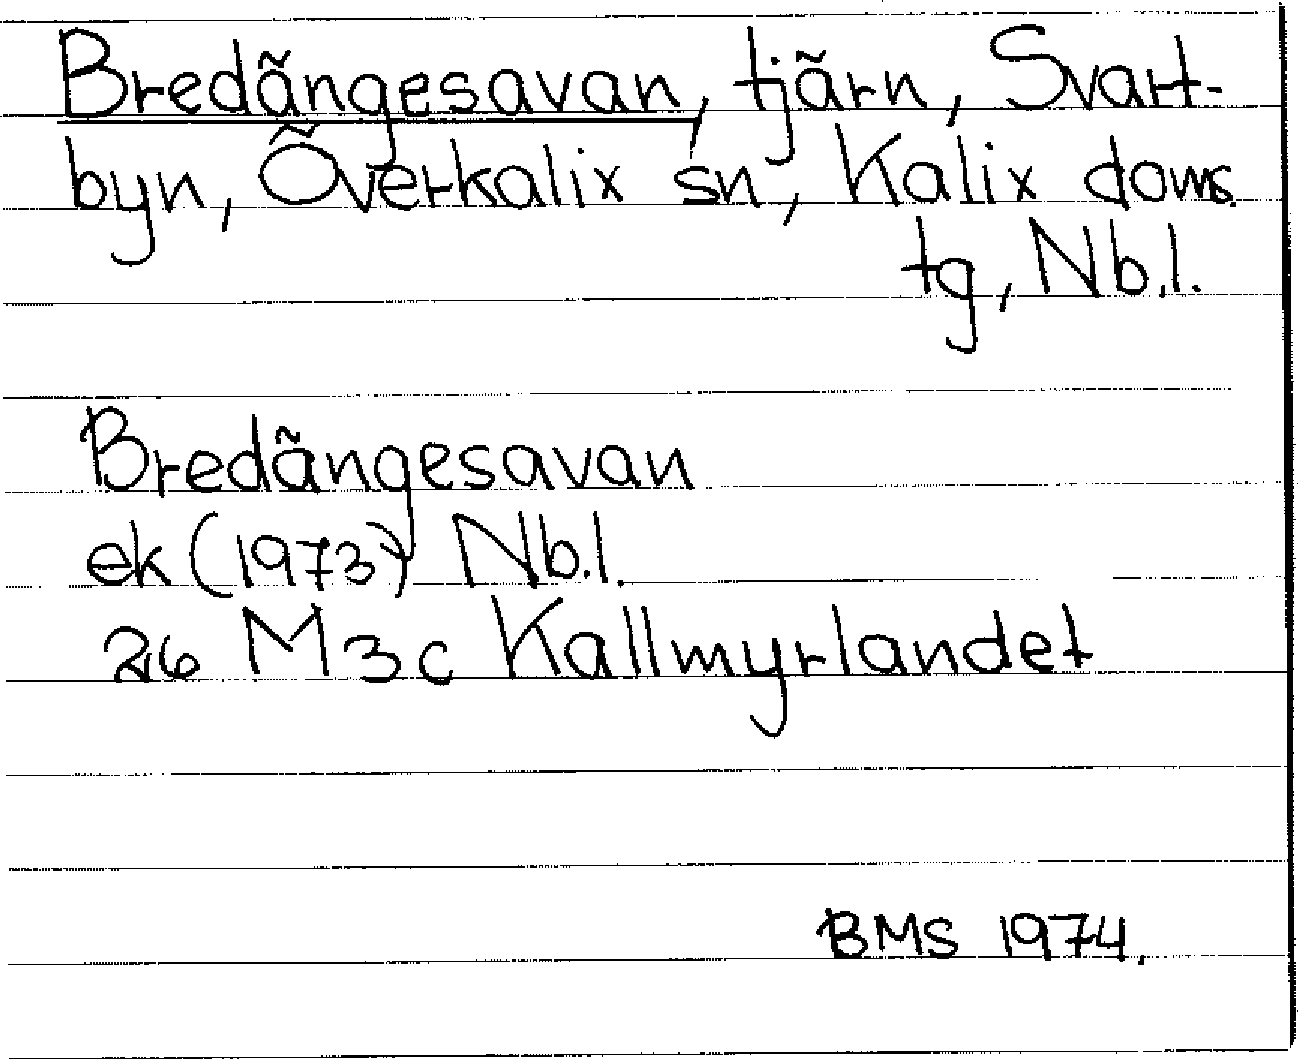 Bredängesavan, tjärn, Svart-
byn, Överkalix sn, Kalix doms.
tg, Nb.l.
Bredängesavan
ek (1973) Nb.l.
26 M 3c Kallmyrlandet
BMS 1974.